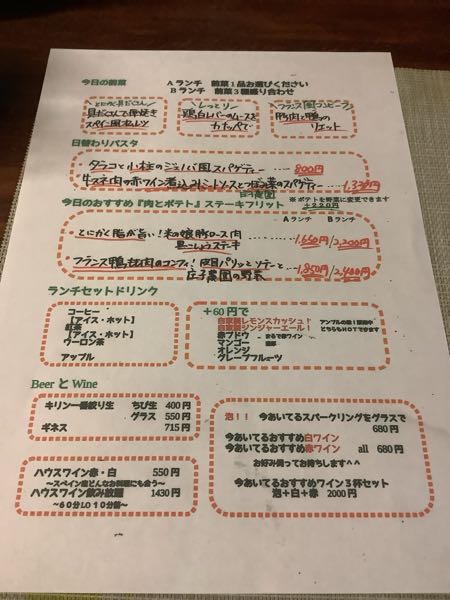 今日の前菜
Aランチ 前菜1品お選びください
Bランチ 前菜3種盛り合わせ
とにかく具だくさん
具だくさんで厚焼き
スペイン風オムレツ
しっとり
鶏白レバームースを
カナッペで
フランス風コンビーフ
豚肉と鴨の
リエット
日替わりパスタ
タラコと小柱のジェノバ風スパゲティー ---- 800円
牛スネ肉の赤ワイン煮込みレンズとつぼみ菜のスパゲティー ---- 1,330円
今日のおすすめ『肉とポテト』ステーキフリット
※ポテトを野菜に変更できます
+220円
Aランチ Bランチ
とにかく脂が旨い!米の娘豚ロース肉
黒こしょうステーキ
1,650円/2,200円
フランス鴨もも肉のコンフィ!皮目パリッとソテーと
庄子農園の野菜
1,850円/2,400円
ランチセットドリンク
コーヒー
【アイス・ホット】
紅茶
【アイス・ホット】
ウーロン茶
アップル
+60円で
自家製レモンスカッシュ!
自家製ジンジャーエール!
どちらもHOTできます
赤ブドウ まるで赤ワイン
マンゴー 濃厚
オレンジ
グレープフルーツ
Beer と Wine
キリン一番絞り生 ちび生 400円
グラス 550円
ギネス 715円
ハウスワイン赤・白 550円
～スペイン産どんなお料理にも合う～
ハウスワイン飲み放題 1430円
～60分LO10分前～
泡!! 今あいてるスパークリングをグラスで
680円
今あいてるおすすめ白ワイン
今あいてるおすすめ赤ワイン all 680円
お好み伺ってお持ちします^^
今あいてるおすすめワイン3杯セット
泡+白+赤 2000円